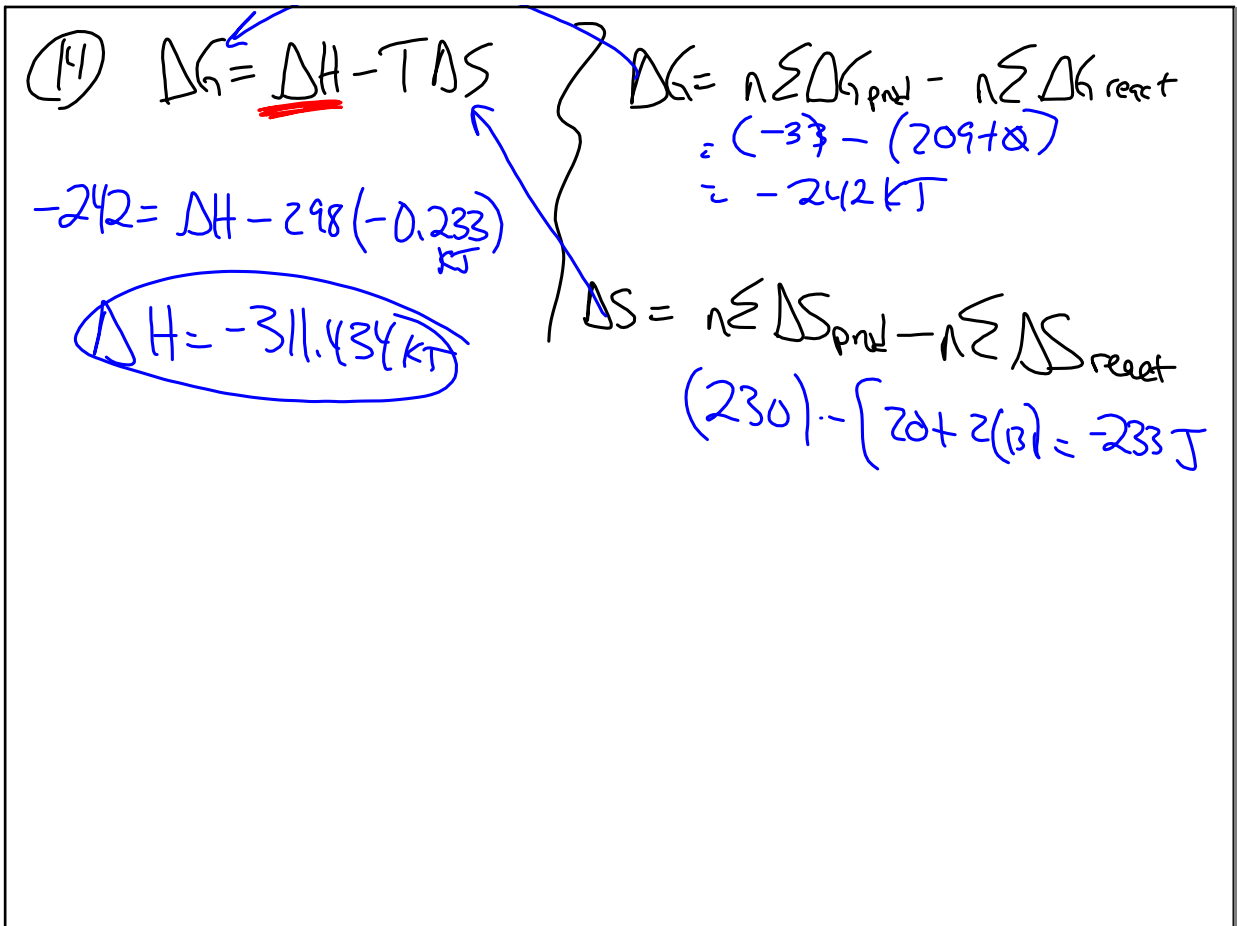 14 ΔG = ΔH - TΔS
-242 = ΔH - 298(-0.233)
KJ
ΔH = -311.434 KJ
ΔG = nΣΔG prod - nΣΔG react
= (-33 - (209+0)
= -242 KJ
ΔS = nΣΔS prod - nΣΔS react
(230) - [ 20+ 2(131) = -233 J